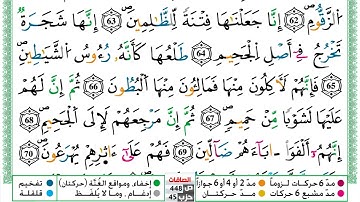 ٱلزَّقُّومِ ۝٦٢ إِنَّا جَعَلْنَٰهَا فِتْنَةً لِّلظَّٰلِمِينَ ۝٦٣ إِنَّهَا شَجَرَةٌ
تَخْرُجُ فِىٓ أَصْلِ ٱلْجَحِيمِ ۝٦٤ طَلْعُهَا كَأَنَّهُۥ رُءُوسُ ٱلشَّيَٰطِينِ
۝٦٥ فَإِنَّهُمْ لَءَاكِلُونَ مِنْهَا فَمَالِـُٔونَ مِنْهَا ٱلْبُطُونَ ۝٦٦ ثُمَّ إِنَّ لَهُمْ
عَلَيْهَا لَشَوْبًا مِّنْ حَمِيمٍ ۝٦٧ ثُمَّ إِنَّ مَرْجِعَهُمْ لَإِلَى ٱلْجَحِيمِ ۝٦٨
إِنَّهُمْ أَلْفَوْا۟ ءَابَآءَهُمْ ضَآلِّينَ ۝٦٩ فَهُمْ عَلَىٰٓ ءَاثَٰرِهِمْ يُهْرَعُونَ ۝٧٠
مدّ 6 حركات لزوماً مدّ 2 أو 4 أو 6 جوازاً الصافات ص 448 حزب 45 إخفاء، ومواقع الغُنَّة (حركتان) تفخيم
مدّ مشبع 6 حركات مدّ حركتان إدغام، وما لا يُلفظ قلقلة